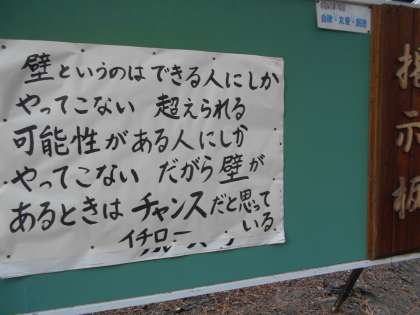 壁というのはできる人にしか
やってこない 超えられる
可能性がある人にしか
やってこない だから壁が
あるときはチャンスだと思って
いる
イチロー
掲示板